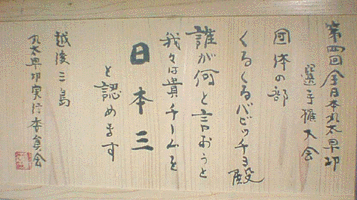 第四回全日本丸太早切
選手権大会
団体の部
くるくるバビッチョ殿
誰が何と言おうと
我々は貴チームを
日本三
と認めます
越後三島
丸太早切実行委員会